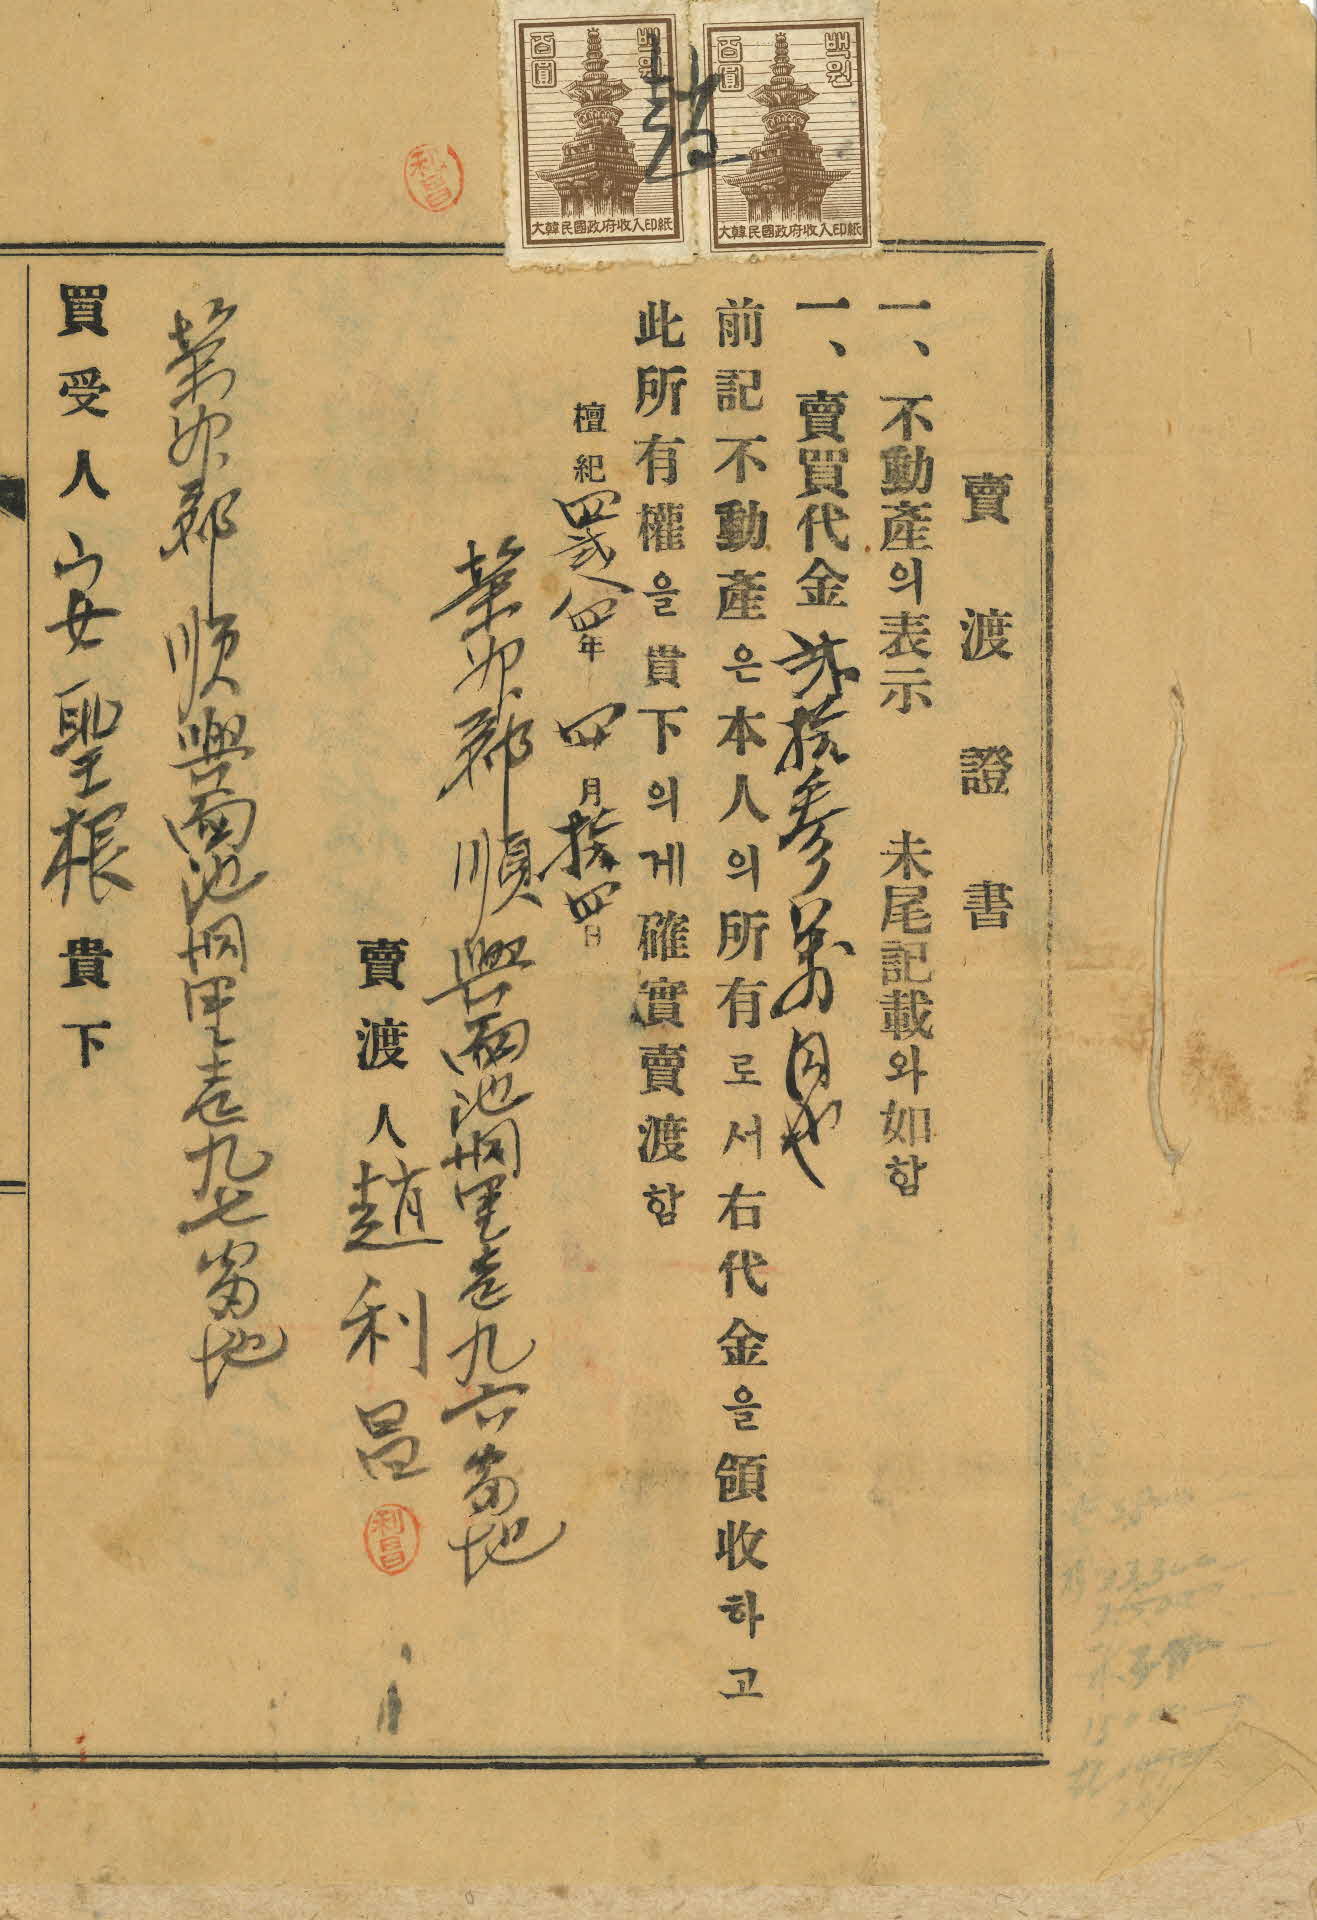 賣渡證書
一、不動産의表示 未尾記載와如함
一、賣買代金 貳拾參萬円也
前記不動産은本人의所有로서右代金을領收하고
此所有權을貴下의게確實賣渡함
檀紀四貳八四年 四月拾四日
榮州郡順興面池洞里壹九六番地
賣渡人 趙利昌
利昌
榮州郡順興面池洞里壹九七番地
買受人 安聖根 貴下
利昌
百圓 백원
大韓民國政府收入印紙
百圓 백원
大韓民國政府收入印紙